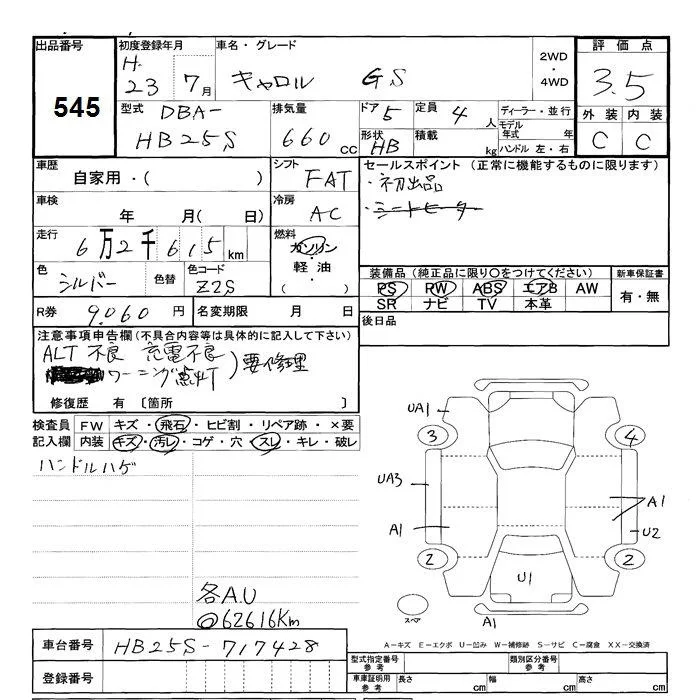 出品番号 初度登録年月 車名・グレード 2WD・4WD 評価点
545 H-23年7月 キャロル GS 3.5
型式 DBA-HB25S 排気量 660cc ドア 5 定員 4人 ディーラー・並行 外装 内装
形状 HB 積載 kg モデル年式 年 ハンドル 左・右 C C
車歴 自家用・( ) シフト FAT セールスポイント (正常に機能するものに限ります)
・初出品
・シートヒーター
車検 年 月(日) 冷房 AC
走行 6万2千615km 燃料 ガソリン・軽油・( )
色 シルバー 色替 色コード Z2S
装備品 (純正品に限り○をつけてください) 新車保証書
PS RW ABS エアB AW 有・無
SR ナビ TV 本革
R券 9,060円 名変期限 月 日 後日品
注意事項申告欄 (不具合内容等は具体的に記入して下さい)
ALT不良 充電不良
ワーニング点灯 ) 要修理
修復歴 有 〔箇所 〕
検査員 FW キズ・飛石・ヒビ割・リペア跡・×要
記入欄 内装 キズ・汚レ・コゲ・穴・スレ・キレ・破レ
ハンドルハゲ
各A.U
@62616Km
UA1
3 4
UA3
A1 A1
U2
2 2
U1
スペア A1
A-キズ E-エクボ U-凹み W-補修跡 S-サビ C-腐食 XX-交換済
車台番号 HB25S-717428
型式指定番号 参考 類別区分番号 参考
登録番号 車庫証明用 参考 長さ cm 幅 cm 高さ cm